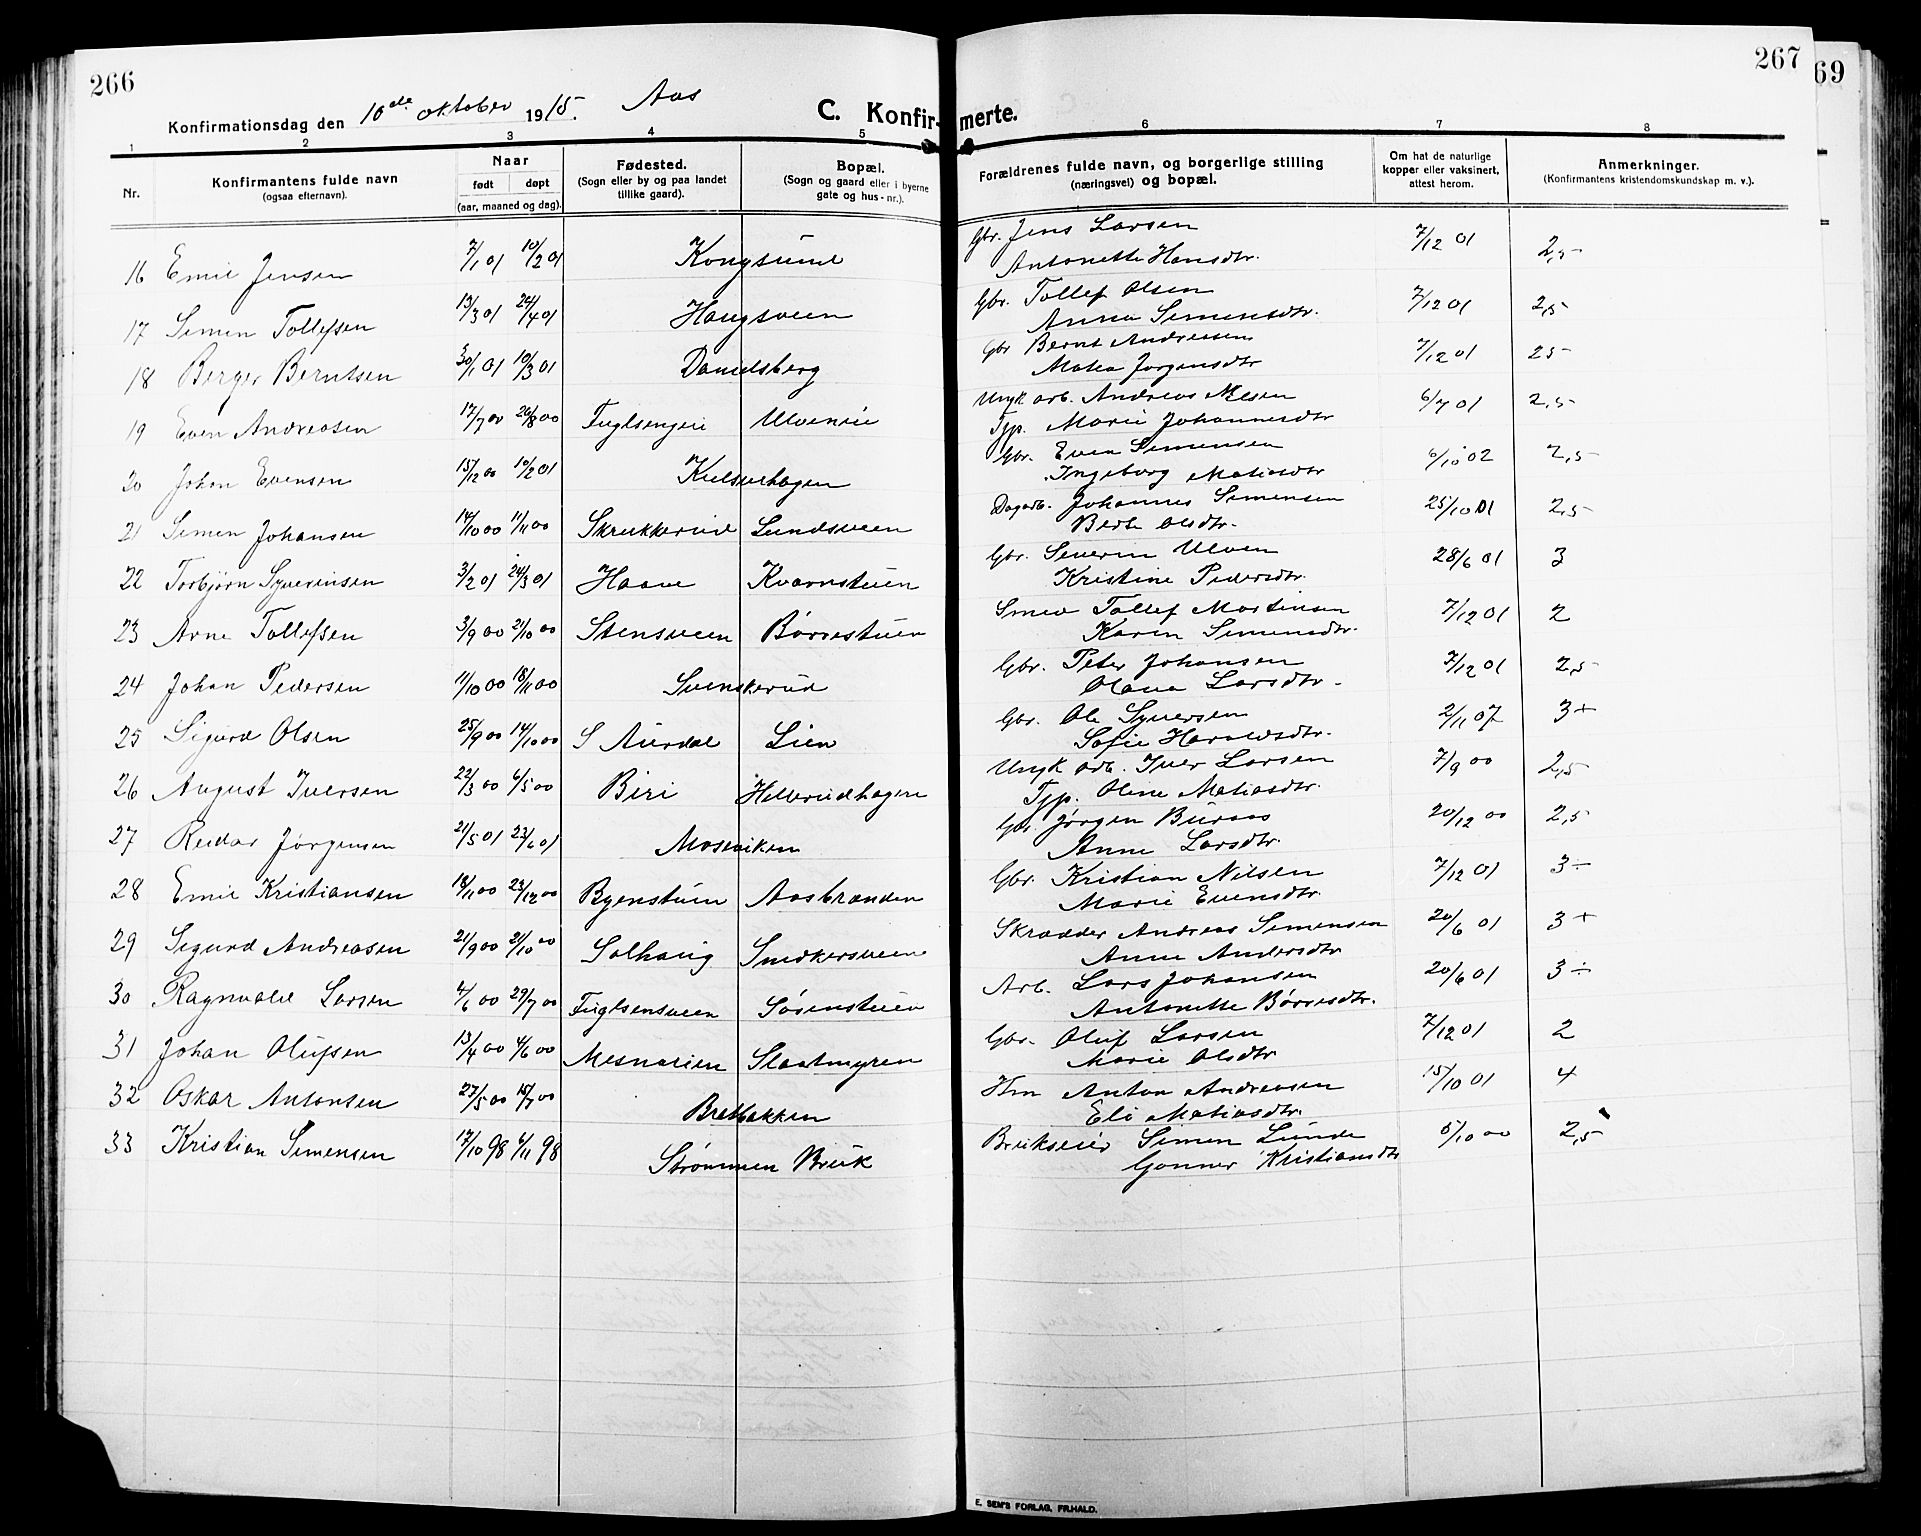 266
267
69
Konfirmationsdag den 10de oktober 1915. Aas
C. Konfir- merte.
1 2 3 4 5 6 7 8
Nr.
Konfirmantens fulde navn
(ogsaa efternavn).
Naar
født døpt
(aar, maaned og dag).
Fødested.
(Sogn eller by og paa landet
tillike gaard).
Bopæl.
(Sogn og gaard eller i byerne
gate og hus-nr.).
Forældrenes fulde navn, og borgerlige stilling
(næringsvei) og bopæl.
Om hat de naturlige
kopper eller vaksinert,
attest herom.
Anmerkninger.
(Konfirmantens kristendomskundskap m. v.).
16 Emil Jensen 7/1 01 10/2 01 Kongsund Gbr. Jens Larsen 7/12 01 2,5
Antonette Hansdtr.
17 Simen Tollefsen 13/3 01 24/4 01 Haugsveen Gbr. Tollef Olsen 7/12 01 2,5
Anna Simensdtr.
18 Berger Berntsen 30/1 01 10/3 01 Danielsberg Gbr Bernt Andreasen 7/12 01 25
Matea Jørgensdtr
19 Even Andreasen 17/7 00 26/8 00 Fuglsengeie Ulveneie Ungk arb. Andreas Nilsen 6/7 01 2,5
Tjp. Marie Johannesdtr
20 Johan Evensen 15/12 00 10/2 01 Gbr. Even Simensen 6/10 02 2,5
Ingeborg Matiasdtr
21 Simen Johansen 14/10 00 11/11 00 Skrukkerud Lundsveen Dagarb. Johannes Simensen 25/10 01 2,5
Berte Olsdtr.
22 Torbjørn Syverinsen 3/2 01 24/3 01 Haave Kvarnstuen Gbr. Severin Ulven 28/6 01 3
Kristine Pedersdtr.
23 Arne Tollefsen 3/9 00 21/10 00 Stensveen Børrestuen Smed Tollef Martinsen 7/12 01 2
Karen Simensdtr.
24 Johan Pedersen 11/10 00 18/11 00 Svenskerud Gbr. Peter Johansen 7/12 01 2,5
Olava Larsdtr.
25 Sigurd Olsen 25/9 00 14/10 00 S Aurdal Lien Gbr. Ole Syversen 2/11 07 3+
Sofie Haraldsdtr.
26 August Iversen 22/3 00 6/5 00 Biri Hellerudhagen Ungk arb. Iver Larsen 7/9 00 2,5
Tjp. Oline Matiasdtr.
27 Reidar Jørgensen 21/5 01 23/6 01 Moseviken Gbr. Jørgen Buraas 20/12 00 2,5
Anne Larsdtr.
28 Emil Kristiansen 18/11 00 23/12 00 Byenstuen Aasbranden Gbr. Kristian Nilsen 7/12 01 3÷
Marie Evensdtr.
29 Sigurd Andreasen 21/9 00 21/10 00 Solhaug Smidkersveen Skrædder Andreas Simensen 20/6 01 3+
Anne Andersdtr
30 Ragnvald Larsen 4/6 00 29/7 00 Fuglsensveen Søsenstuen Arb. Lars Johansen 20/6 01 3÷
Antonette Børresdtr.
31 Johan Olufsen 13/4 00 4/6 00 Mesnaeien Slaatmyren Gbr. Oluf Larsen 7/12 01 2
Marie Olsdtr
32 Oskar Antonsen 27/5 00 15/7 00 Bretbakken Hm Anton Andreasen 15/10 01 4
Eli Matiasdtr.
33 Kristian Simensen 17/10 98 6/11 98 Strømmen Bruk Brukseier Simen Lunde 5/10 00 2,5
Gonner Kristiansdtr
E. SEM'S FORLAG, FR.HALD.